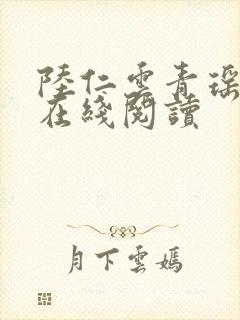 陸仁雲青瑶
在綫閱讀
月下雲嫣